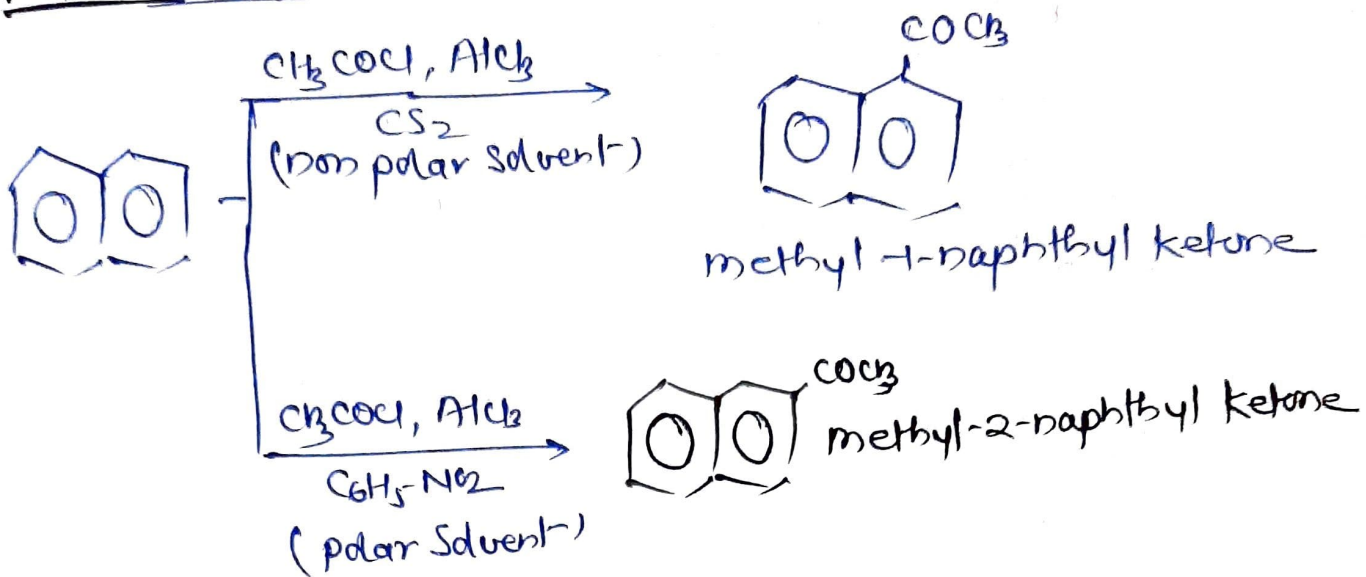 CH3COCl, AlCl3
CS2
(non polar solvent)
COCH3
methyl-1-naphthyl ketone
CH3COCl, AlCl3
C6H5-NO2
(polar Solvent)
COCH3
methyl-2-naphthyl ketone